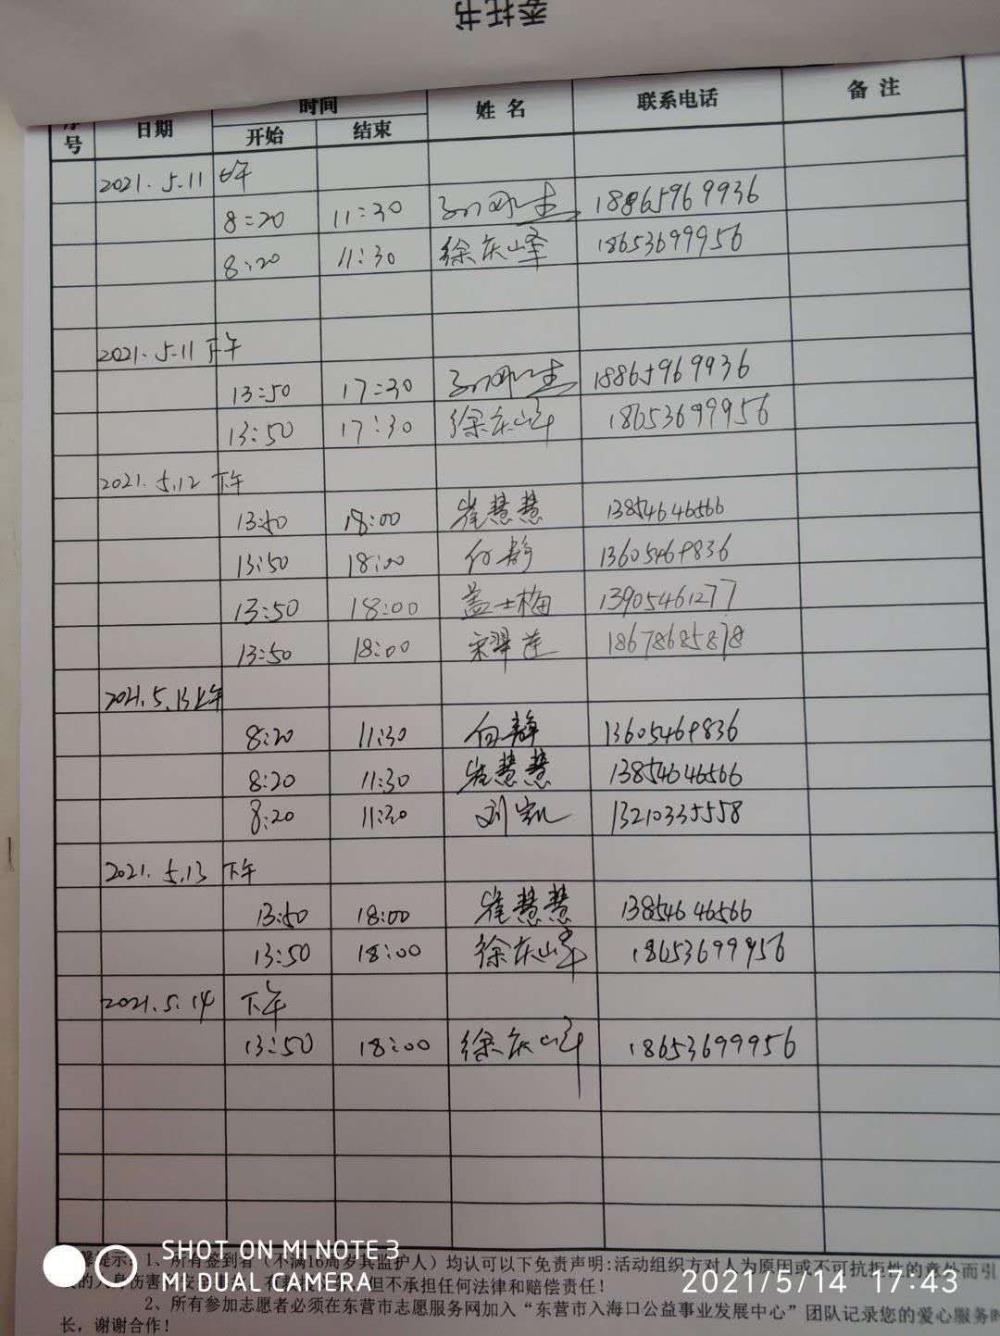 委托书
序号 日期 时间 姓名 联系电话 备注
开始 结束
2021.5.11 上午
8:20 11:30 18865969936
8:20 11:30 徐庆峰 18653699956
2021.5.11 下午
13:50 17:30 18865969936
13:50 17:30 徐庆峰 18653699956
2021.5.12 下午
13:50 18:00 崔慧慧 13854646566
13:50 18:00 付静 13605469836
13:50 18:00 盖士梅 13905461277
13:50 18:00 宋翠莲 18678685878
2021.5.13 上午
8:20 11:30 付静 13605469836
8:20 11:30 崔慧慧 13854646566
8:20 11:30 刘凯 13210335558
2021.5.13 下午
13:50 18:00 崔慧慧 13854646566
13:50 18:00 徐庆峰 18653699956
2021.5.14 下午
13:50 18:00 徐庆峰 18653699956
馨提示:1、所有签到者(不满16周岁其监护人)均认可以下免责声明:活动组织方对人为原因或不可抗拒性的意外而引
的人身伤害 但不承担任何法律和赔偿责任!
2、所有参加志愿者必须在东营市志愿服务网加入“东营市入海口公益事业发展中心”团队记录您的爱心服务时
长，谢谢合作!
SHOT ON MI NOTE 3
MI DUAL CAMERA
2021/5/14 17:43